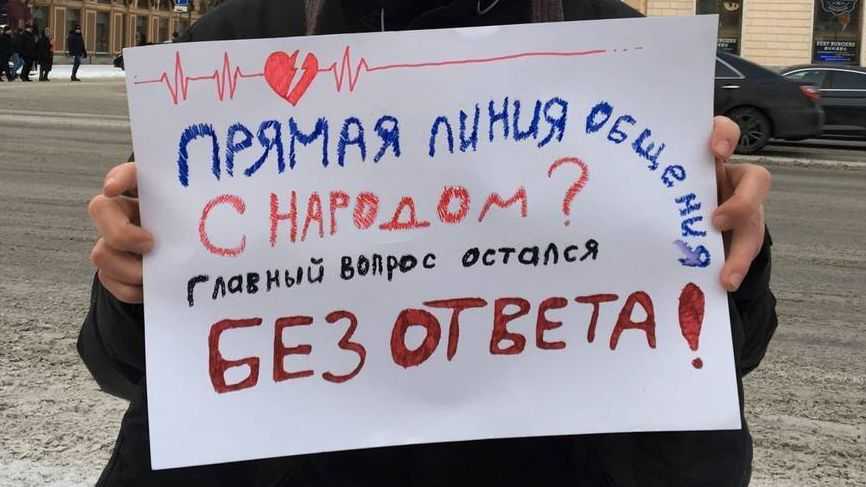 ПРЯМАЯ ЛИНИЯ ОБЩЕНИЯ
С НАРОДОМ?
ГЛАВНЫЙ ВОПРОС ОСТАЛСЯ
БЕЗ ОТВЕТА!